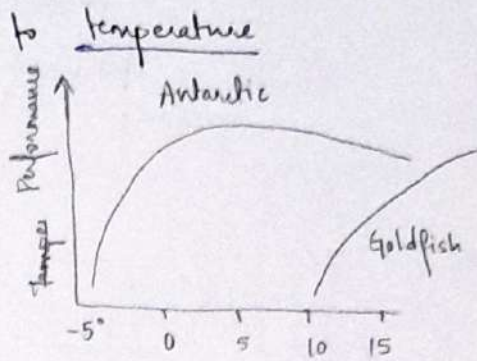 to temperature
Antarctic
Performance
Goldfish
-5° 0 5 10 15